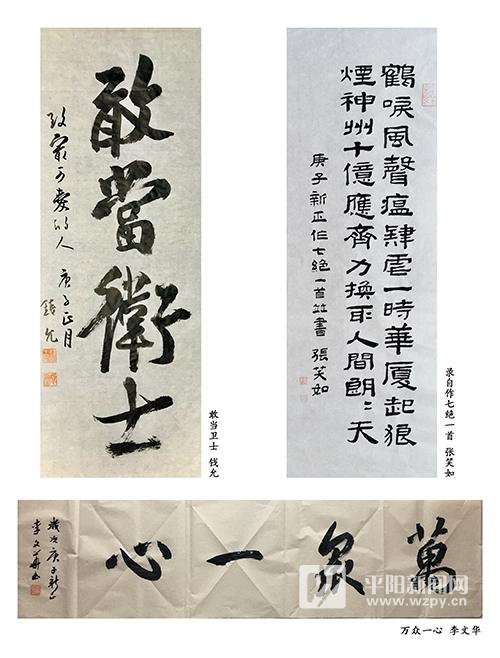 敢當衛士
致最可愛的人 庚子正月
錢允
敢当卫士 钱允
鶴唳風聲瘟肆虐一時華廈起狼
煙神州十億應齊力換取人間朗〻天
庚子新正作七絕一首並書 張笑如
录自作七绝一首 张笑如
萬眾一心
歲次庚子新正
李文華書
平阳新闻网
www.wzpy.cn
万众一心 李文华